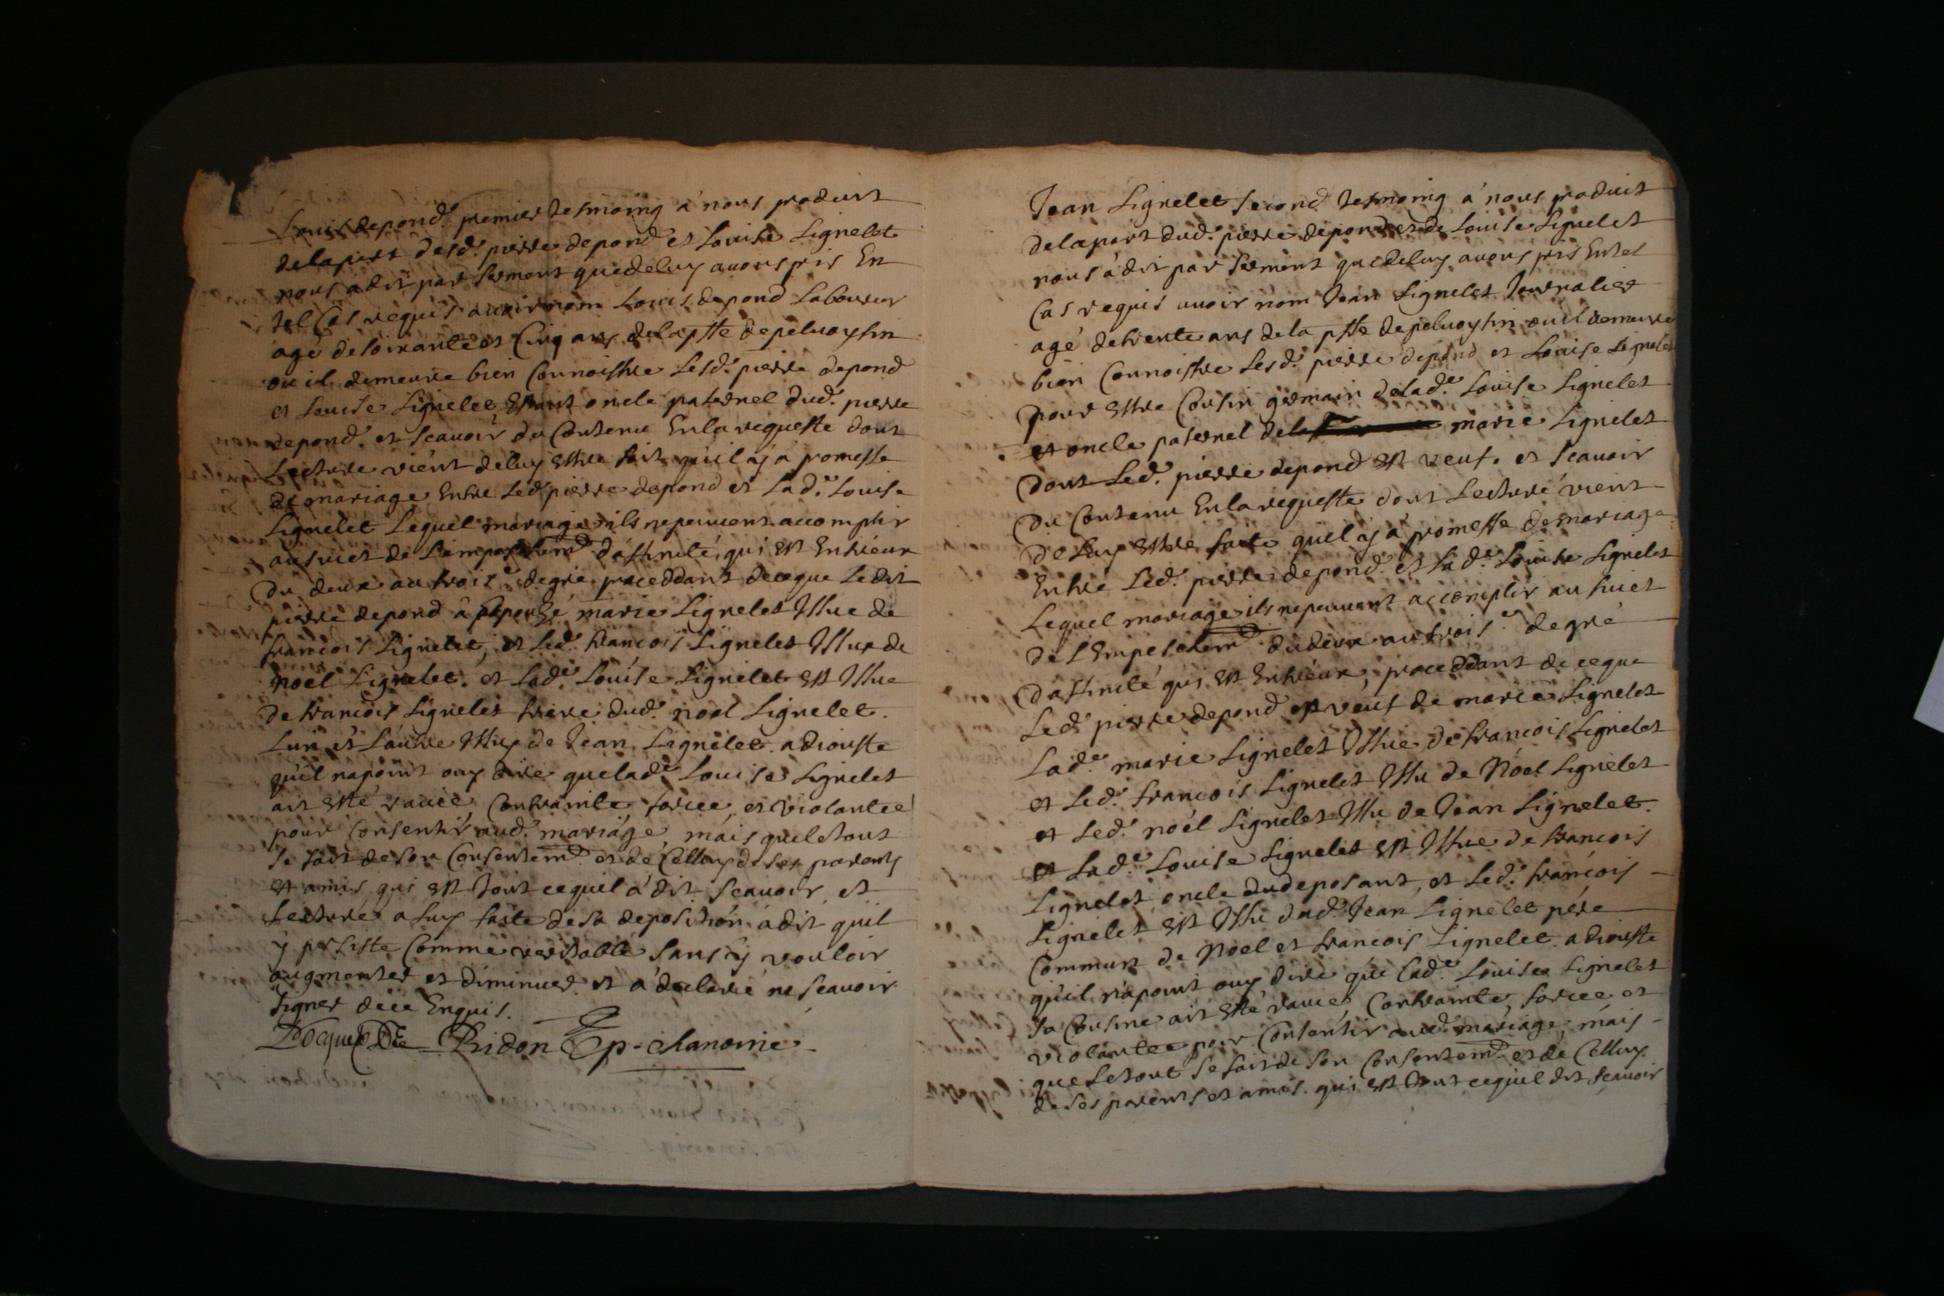 Louis depond premier tesmoing a nous produit
de la part desd. pierre depond et Louise Lignelet
nous a dit par serment que de luy avons pris En
tel Cas requis avoir nom Louis depond Laboureur
agé de soixante et Cinq ans de la psse de peluoysin
ou il demeure bien Connoistre Lesd. pierre depond
et Louise Lignelet Estant oncle paternel dud. pierre
depond. et scavoir du Contenu En la requeste dont
Lecture vient de luy Estre fait qu'il ay a promesse
de mariage Entre Led. pierre depond et Lad.e Louise
Lignelet Lequel mariage ils ne peuvent accomplir
au suiet de L'empeschemt d'affinité qui est Entrieux
Du deux au trois.e degré proceddant de ce que Ledit
pierre depond à Espousé marie Lignelet Issue de
francois Lignelet, et Led. francois Lignelet Issu de
noel Lignelet. et Lad.e Louise Lignelet est Issue
De francois Lignelet frere dud. noel Lignelet.
Lun et Lautre Issus de Jean Lignelet. adiouste
qu'il n'a point ouy dire que lad.e Louise Lignelet
ait esté ravie Contrainte forcee et violantee
pour Consentir aud. mariage mais que le tout
se fait de son Consentemt et de Celluy de ses parents
et amis qui est tout ce quil a dit scavoir et
Lecture a luy faite de sa deposition a dit quil
y persiste Comme veritable sans y vouloir
augmenter et diminuer et a declaré ne scavoir
signer de ce Enquis.
Ridon Ep. chanoine
Jean Lignelet second tesmoing a nous produit
de la part dud. pierre depond et de Louise Lignelet
nous a dit par serment que de luy avons pris En tel
Cas requis avoir nom Jean Lignelet Journalier
agé de trente ans de la psse de peluoysin ou il demeure
bien Connoistre Lesd. pierre depond et Louise Lignelet
pour Estre Cousin germain de lad.e Louise Lignelet
et oncle paternel de la marie Lignelet
dont Led. pierre depond est veuf. et scavoir
Du Contenu En la requeste dont Lecture vient
de Luy Estre faite quel ay a promesse de mariage
Entre Led. pierre depond et Lad.e Louise Lignelet
Lequel mariage ils ne peuvent accomplir au suiet
de L'Empeschemt du deux au trois.e degré
d'affinité qui est Entrieux, proceddant de ce que
Led. pierre depond est veuf de marie Lignelet
Lad.e marie Lignelet Issue de francois Lignelet
et Led. francois Lignelet Issu de Noel Lignelet
et Led. noel Lignelet Issu de Jean Lignelet.
et Lad.e Louise Lignelet est Issue de francois
Lignelet oncle du deposant, et Led. francois
Lignelet est Issu dud. Jean Lignelet pere
Commun de Noel et francois Lignelet. adiouste
qu'il n'a point ouy dire que Lad.e Louise Lignelet
sa Cousine ait esté ravie Contrainte forcee et
violantee pour Consentir aud. mariage, mais
que le tout se fait de son Consentemt et de Celluy
de ses parents et amis. qui est tout ce quil dit scavoir